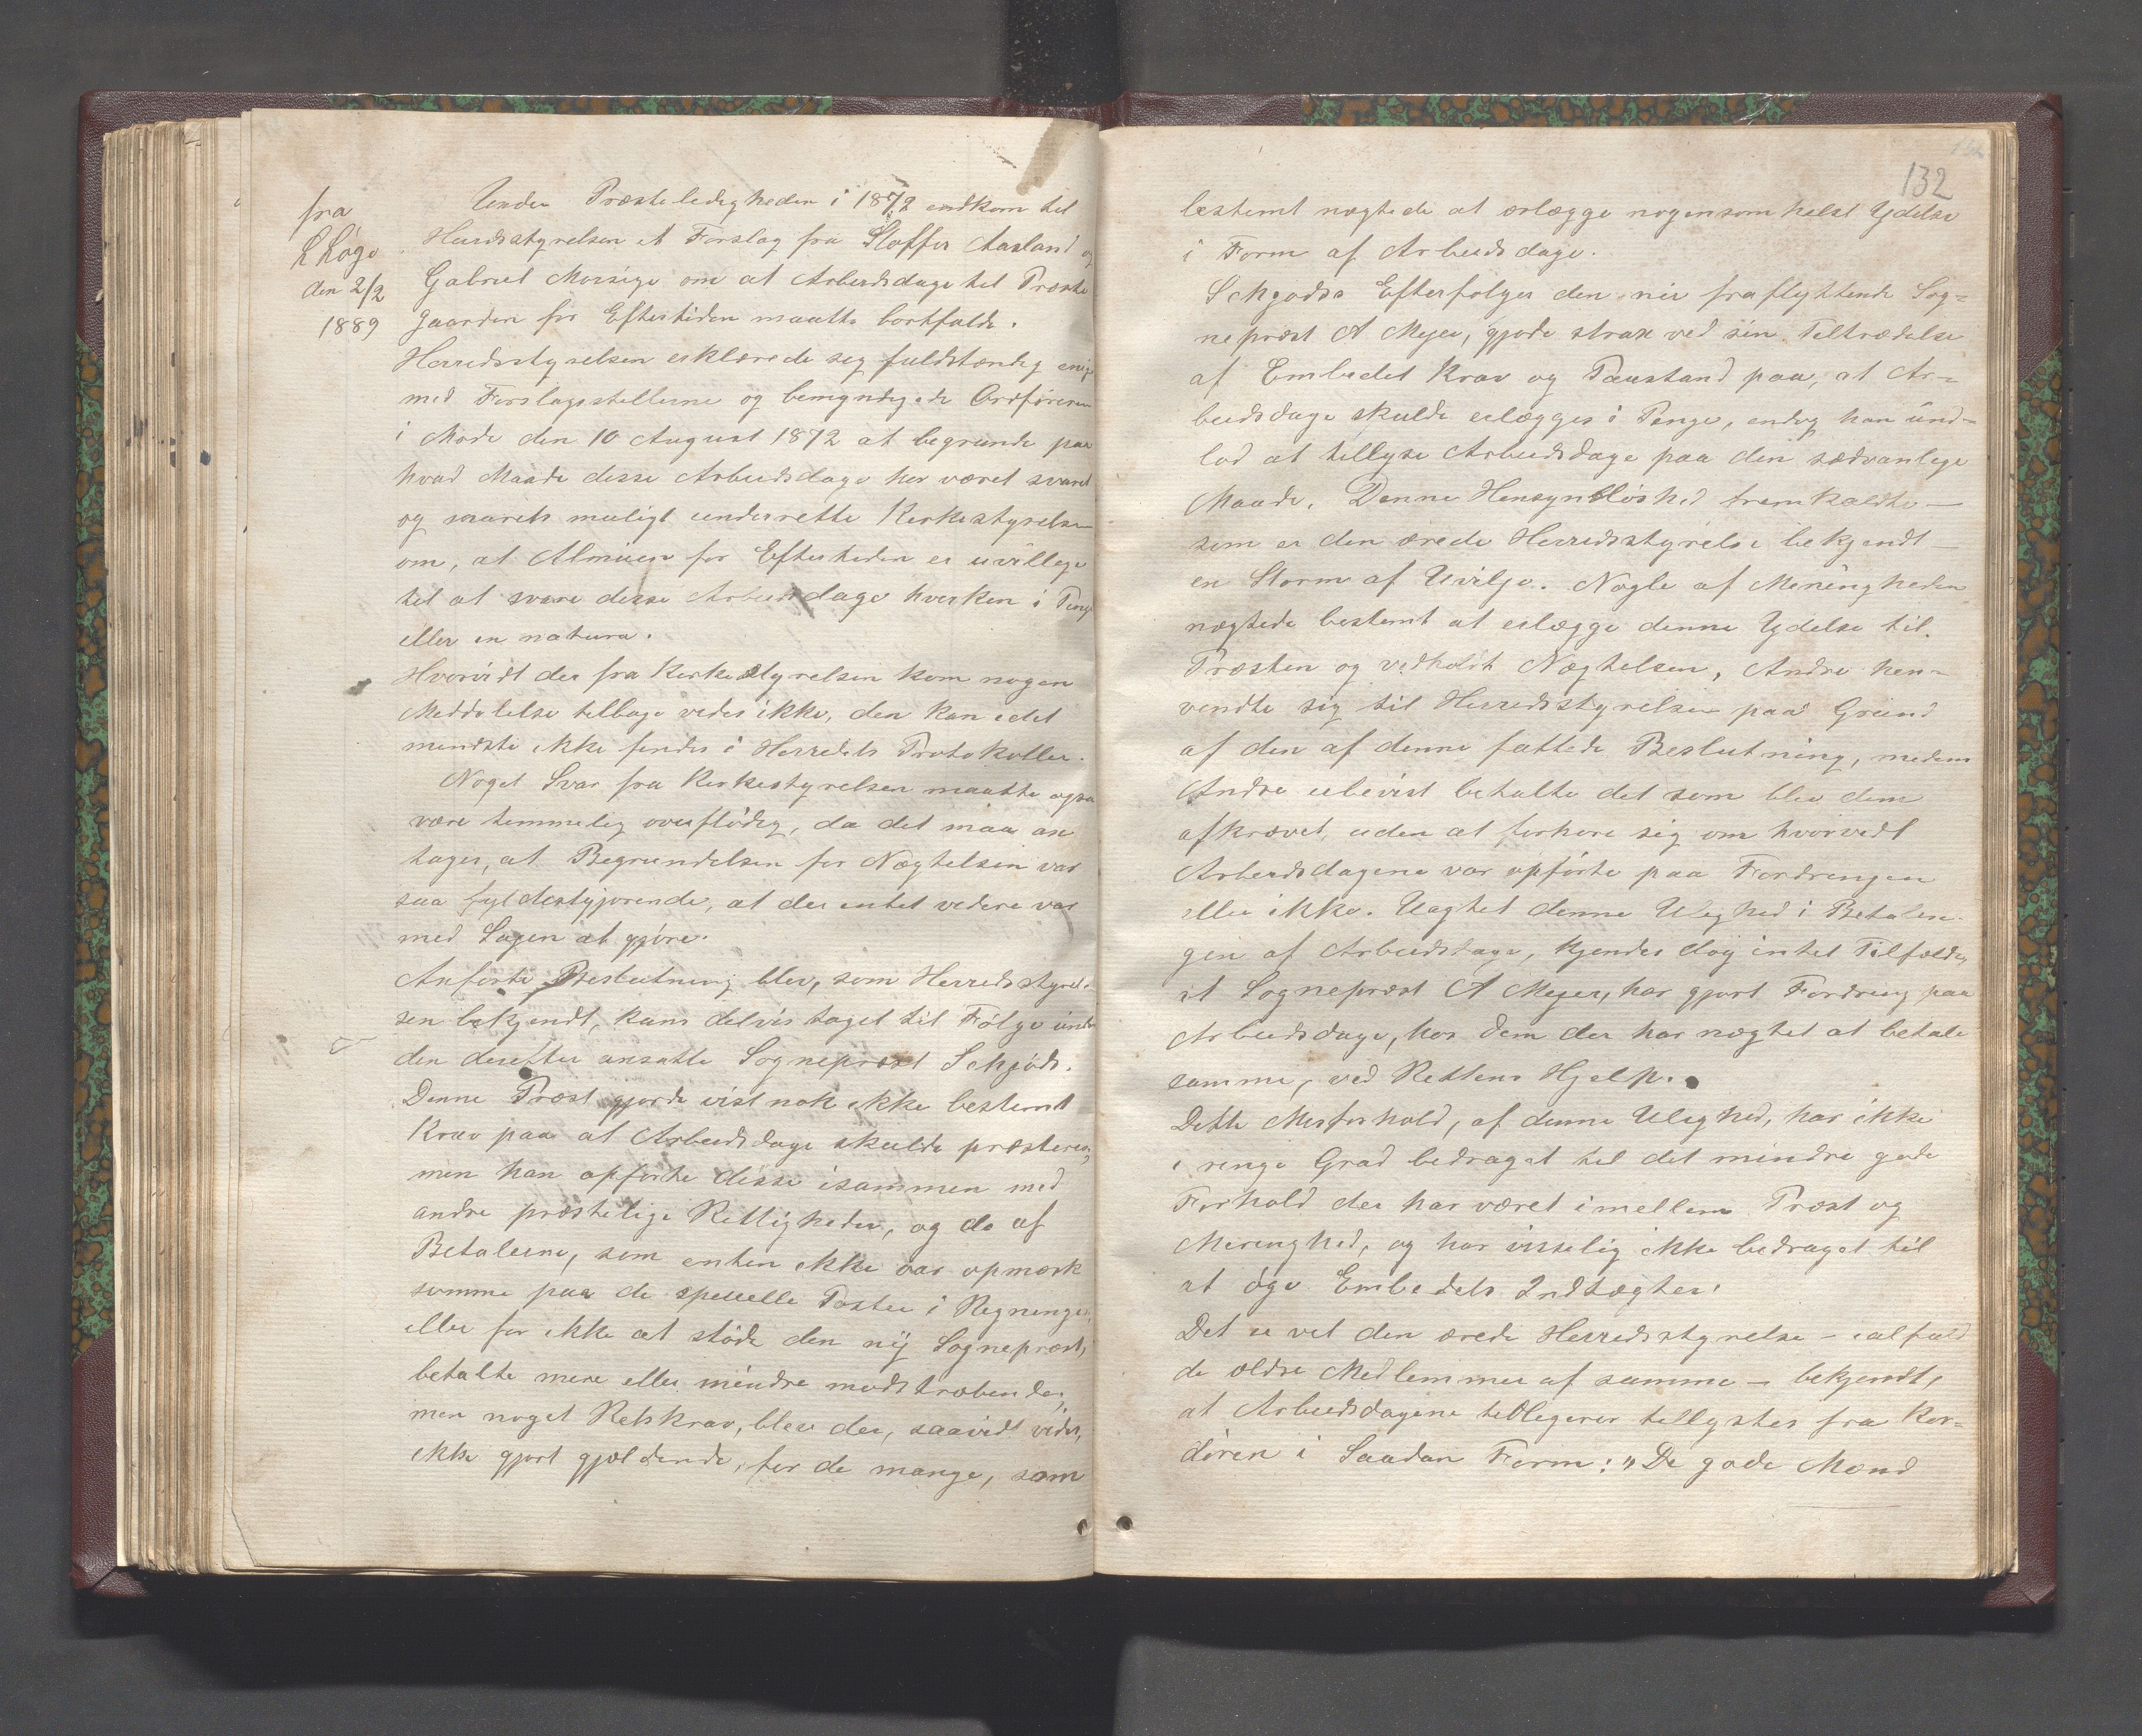 fra
L Löge
den 2/2
1889
Under Præsteledigheden i 1872 indkom til
Herredsstyrelsen et Forslag fra Stoffer Aasland og
Gabriel Morsige om at Arbeidsdage til Præste
gaarden for Eftertiden maatte bortfalde.
Herredsstyrelsen erklærede seg fuldstændig enig
med Forslagsstillerne og bemyndigede Ordföreren
i Møde den 10 August 1872 at begrunde paa
hvad Maade disse Arbeidsdage har været svaret
og snarest muligt underrette Kirkestyrelsen
om, at Almuen for Eftertiden er uvillige
til at svare disse Arbeidsdage hverken i Penge
eller in natura.
Hvorvidt der fra Kirkestyrelsen kom nogen
Meddelelse tilbage vides ikke, den kan idet
mindste ikke findes i Herredets Protokoller.
Noget Svar fra Kirkestyrelsen maatte ogsaa
være temmelig overflödig, da det maa an
tages, at Begrundelsen for Nægtelsen var
saa fyldestgjörende, at der intet videre var
med Sagen at gjöre.
Anförte Beslutning blev, som Herredsstyrel-
sen bekjendt, kuns delvis taget til Fölge under
den derefter ansatte Sognepræst Schjöds.
Denne Præst gjorde vistnok ikke bestemt
Krav paa at Arbeidsdage skulde præsteres,
men han opförte disse isammen med
andre præstelige Rettigheder, og de af
Betalerne, som enten ikke var opmærk
somme paa de specielle Poster i Regningen,
eller for ikke at stöde den nÿ Sognepræst,
betalte mere eller mindre modstræbende;
men noget Retskrav, blev der, saavidt vides,
ikke gjort gjældende, for de mange, som
132
bestemt nægtede at erlægge nogensomhelst Ydelse
i Form af Arbeidsdage.
Schjødss Efterfølger den nu fraflyttende Sog-
nepræst A Meyer, gjorde strax ved sin Tiltrædelse
af Embedet Krav og Paastand paa, at Ar-
beidsdage skulde erlægges i Penge, endog han und-
lod at tillyse Arbeidsdage paa den sædvanlige
Maade. Denne Hensynslöshed fremkaldte —
som er den ærede Herredsstyrelse bekjendt —
en Storm af Uvilje. Nogle af Menigheden
nægtede bestemt at erlægge denne Ydelse til
Præsten og vedholdt Nægtelsen, Andre hen-
vendte sig til Herredsstyrelsen paa Grund
af den af denne fattede Beslutning, medens
Andre ubevist betalte det som blev dem
afkrævet, uden at forhøre sig om hvorvidt
Arbeidsdagene var opförte paa Fordringen
eller ikke. Uagtet denne Ulighed i Betalin-
gen af Arbeidsdage, kjendes dog intet Tilfælde,
at Sognepræst A Meyer, har gjort Fordring paa
Arbeidsdage, hos dem der har nægtet at betale
samme, ved Rettens Hjelp.
Dette Misforhold, af denne Ulighed, har ikke
i ringe Grad bedraget til det mindre gode
Forhold der har været imellem Præst og
Menighed, og har visselig ikke bedraget til
at öge Embedets Indtægter.
Det er vel den ærede Herredsstyrelse – ialfald
de ældre Medlemmer af samme – bekjendt,
at Arbeidsdagene tidligere tillystes fra Kor-
dören i Saadan Form: „De gode Mænd